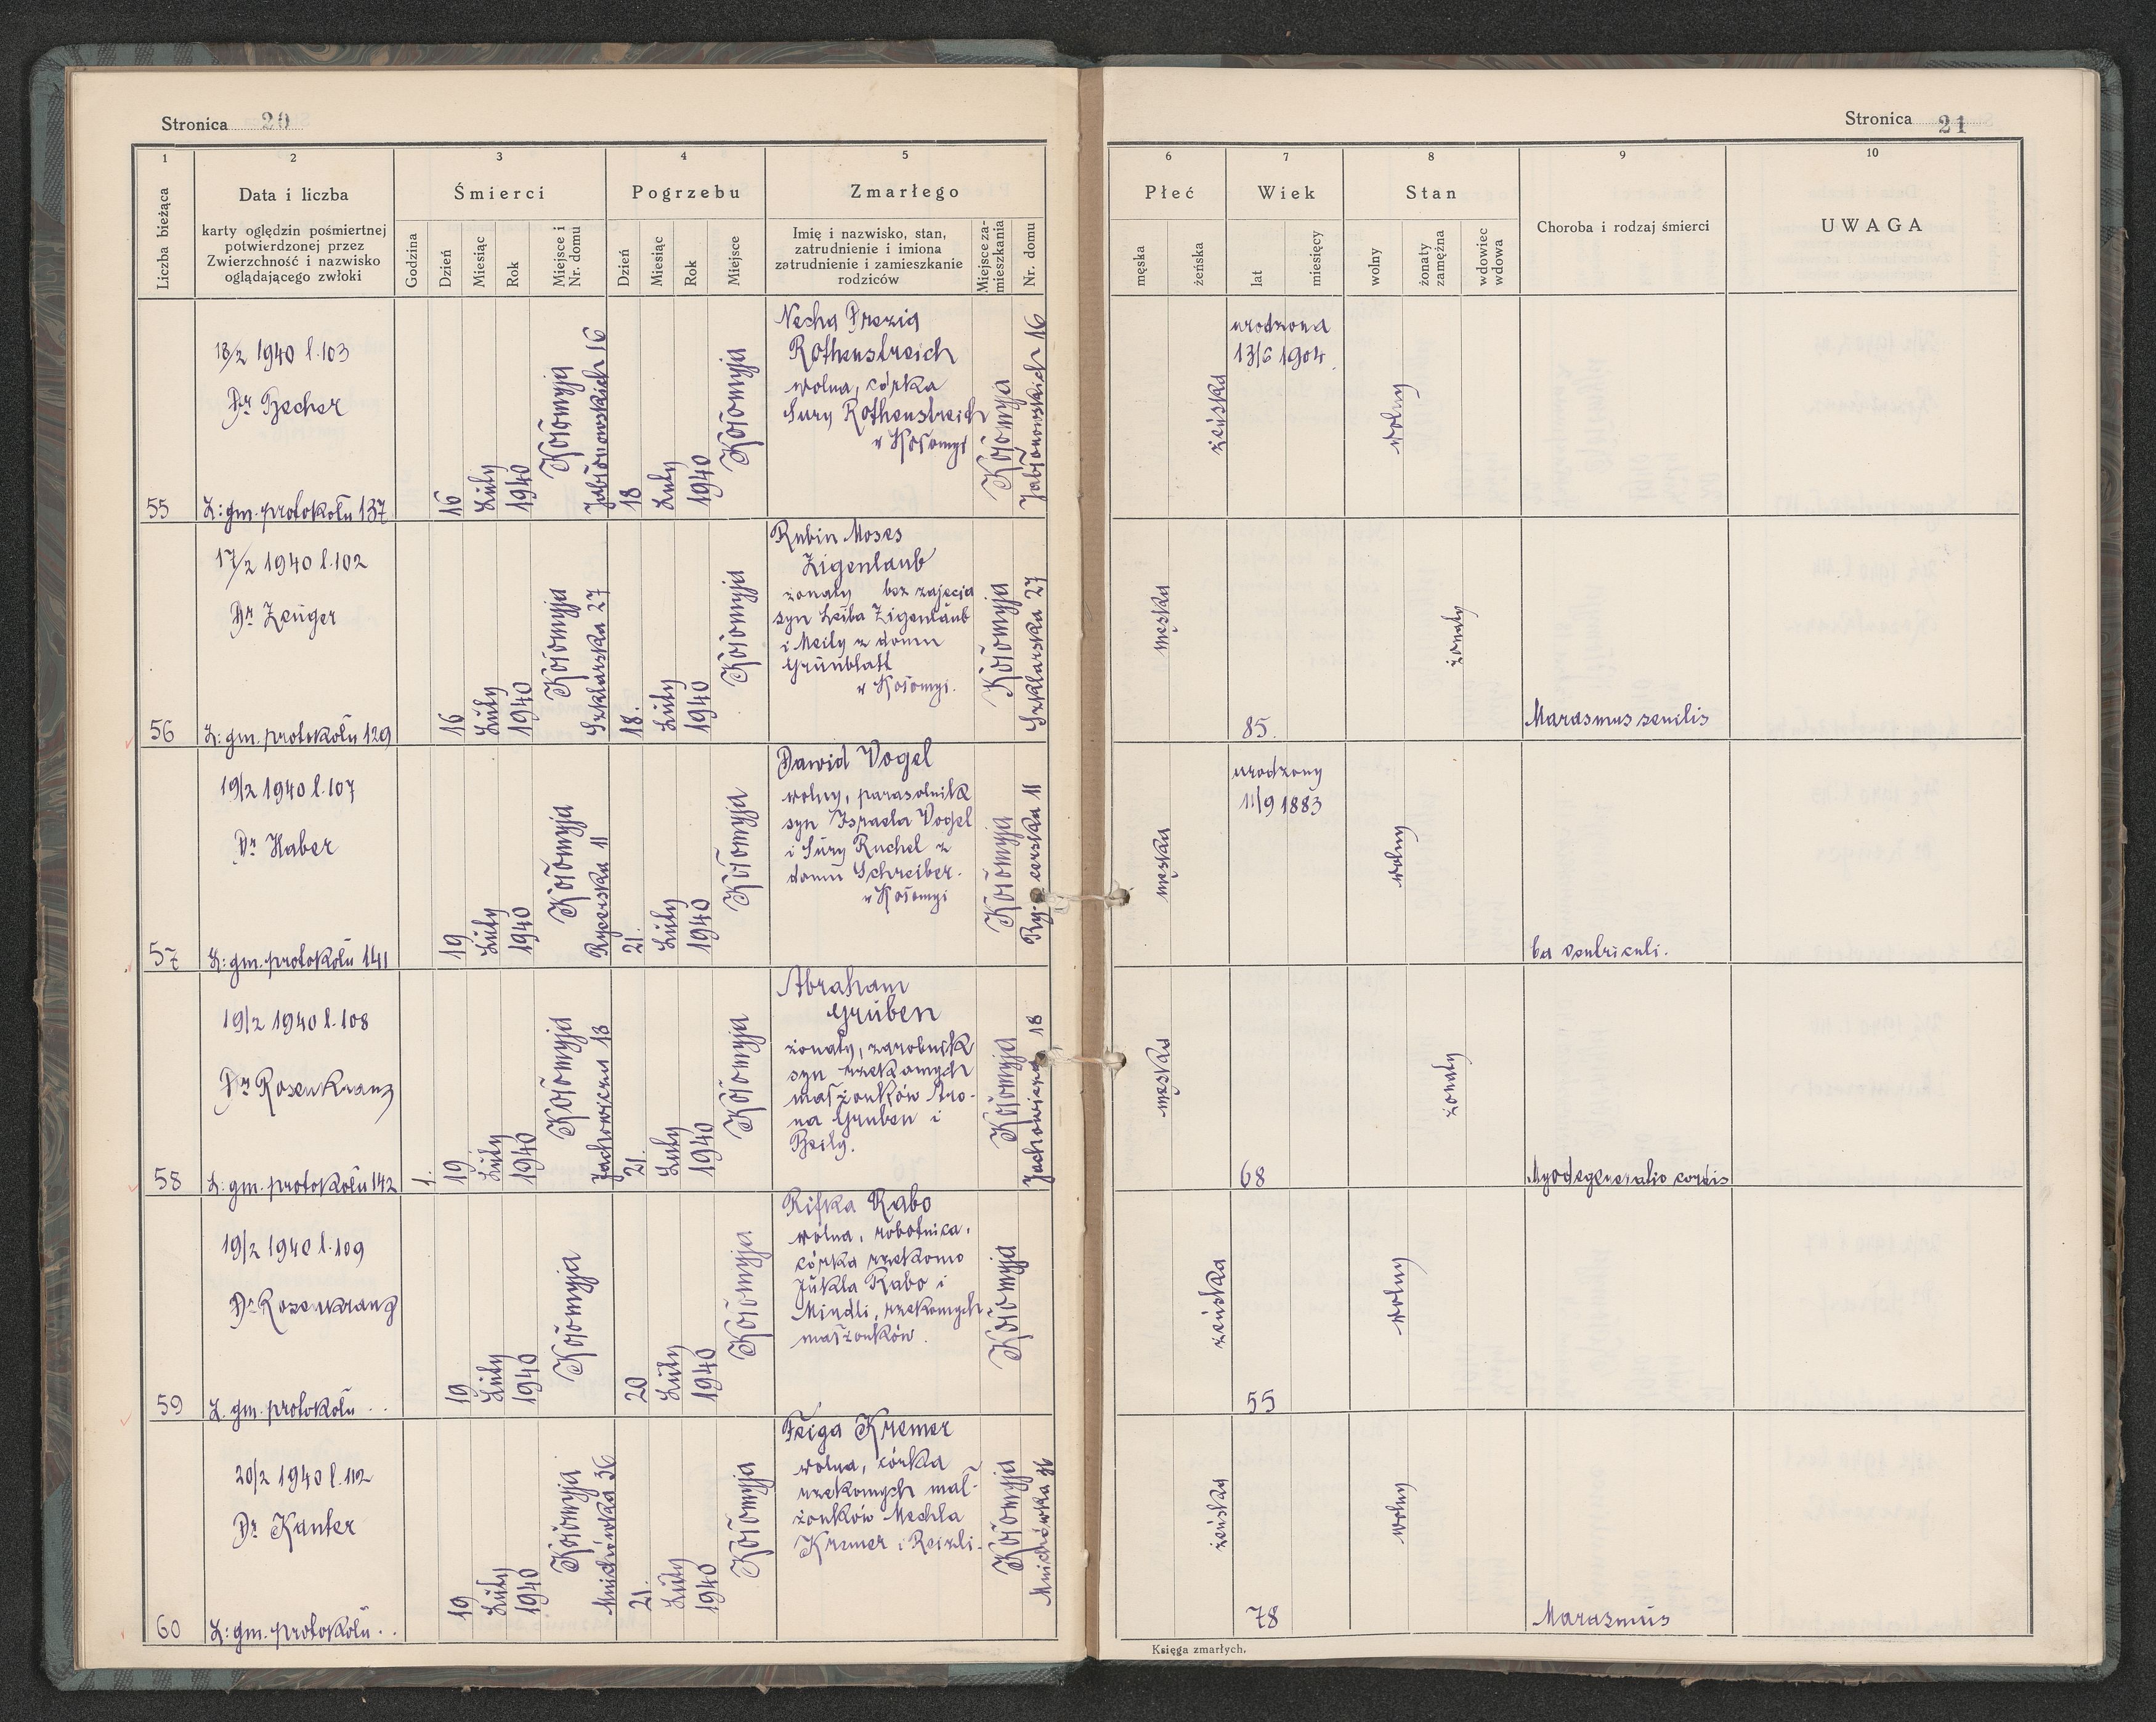 Stronica 20
1
2
3
4
5
Liczba bieżąca
Data i liczba
karty oględzin pośmiertnej
potwierdzonej przez
Zwierzchność i nazwisko
oglądającego zwłoki
Śmierci
Godzina
Dzień
Miesiąc
Rok
Miejsce i
Nr. domu
Pogrzebu
Dzień
Miesiąc
Rok
Miejsce
Zmarłego
Imię i nazwisko, stan,
zatrudnienie i imiona
zatrudnienie i zamieszkanie
rodziców
Miejsce za-
mieszkania
Nr. domu
55
18/2 1940 l.103
Dr Becher
L: gm. protokołu 137
16
Luty
1940
Kołomyja
Jabłonowskich 16
18
Luty
1940
Kołomyja
Necha Drezia
Rothenstreich
wolna, córka
Sury Rothenstreich
w Kołomyi
Kołomyja
Jabłonowskich 16
56
17/2 1940 l.102
Dr Zenger
L: gm. protokołu 129
16
Luty
1940
Kołomyja
Szklarska 27
18.
Luty
1940
Kołomyja
Rubin Moses
Zigenlaub
żonaty bez zajęcia
syn Leiba Zigenlaub
i Meily z domu
Grünblatt
w Kołomyi.
Kołomyja
Szklarska 27
57
19/2 1940 l.107
Dr Haber
L: gm. protokołu 141
19
Luty
1940
Kołomyja
Rycerska 11
21.
Luty
1940
Kołomyja
Dawid Vogel
wolny, parasolnik
syn Israela Vogel
i Sury Ruchel z
domu Schreiber.
w Kołomyi
Kołomyja
Ry-cerska 11
58
19/2 1940 l.108
Dr Rosenkranz
L: gm. protokołu 142
1.
19
Luty
1940
Kołomyja
Jachowicza 18
21.
Luty
1940
Kołomyja
Abraham
Gruben
żonaty, zarobnik
syn rzekomych
małżonków Aro-
na Gruben i
Beily.
Kołomyja
Jachowicza 18
59
19/2 1940 l.109
Dr Rosenkranz
L. gm. protokołu ..
19
Luty
1940
Kołomyja
20
Luty
1940
Kołomyja
Rifka Rabo
wolna, robotnica,
córka rzekomo
Jukla Rabo i
Mindli, rzekomych
małżonków.
Kołomyja
60
20/2 1940 l.112
Dr Kanter
L: gm. protokołu ..
19
Luty
1940
Kołomyja
Mnichówka 36
21.
Luty
1940
Kołomyja
Feiga Kremer
wolna, córka
rzekomych mał-
żonków Mechla
Kremer i Reizli.
Kołomyja
Mnichówka 36
Stronica 21
6
7
8
9
10
Płeć
męska
żeńska
Wiek
lat
miesięcy
Stan
wolny
żonaty
zamężna
wdowiec
wdowa
Choroba i rodzaj śmierci
UWAGA
żeńska
urodzona
13/6 1904.
wolny
męska
85.
żonaty
Marasmus senilis
męska
urodzony
11/9 1883
wolny
ca ventriculi.
męska
68
żonaty
Myodegeneratio cordis
żeńska
55
wolny
żeńska
78
wolny
Marasmus
Księga zmarłych.